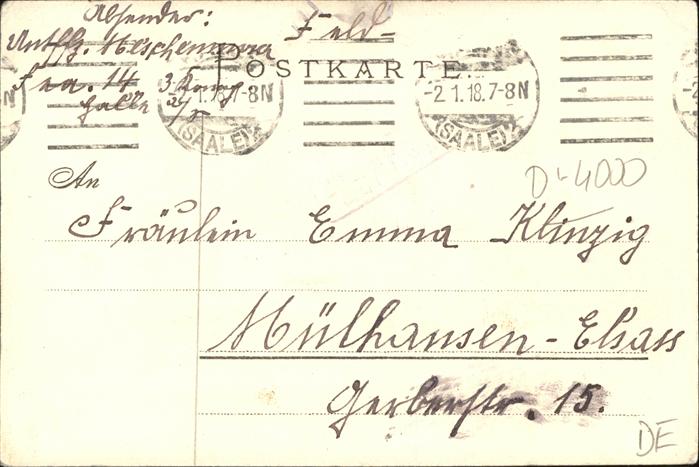 Absender:
Feld-
POSTKARTE
Untffz.
Fea. 14 3 Komp
Halle
-2.1.18.7-8N
(SAALE)
-2.1.18.7-8N
(SAALE)
D-4000
An
Fräulein Emma Klinzig
Mülhausen-Elsass
Gerberstr. 15.
DE